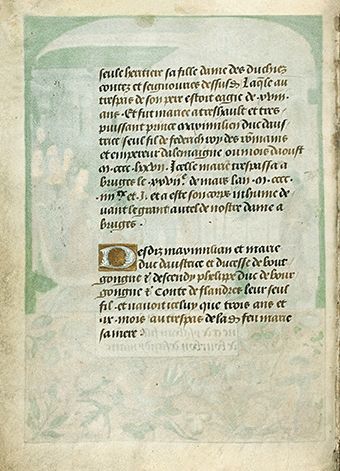 seule heritiere sa fille dame des duchiez
contez et seignouries dessusd. Laqlle au
trespas de son pere estoit eagie de .xviii.
ans. Et fut mariee a treshault et tres
puissant prince maximilien duc daus
trice seul fil de federich roy des romains
et empereur dalemaigne ou mois daoust
m. cccc. lxxvii. Icelle marie trespassa a
bruges le .xxviie. de mars lan .m. cccc.
iiiixx. et .i. et a este son corps inhume de
uant le grant autel de nostre dame a
bruges.
Desdiz maximilian et marie
duc daustrice et ducesse de bour
gongne &c descendy phelippe duc de bour
gongne &c Conte de flandres leur seul
fil. et nauoit icelui que trois ans et
.ix. mois au trespas de lad. feu marie
sa mere.